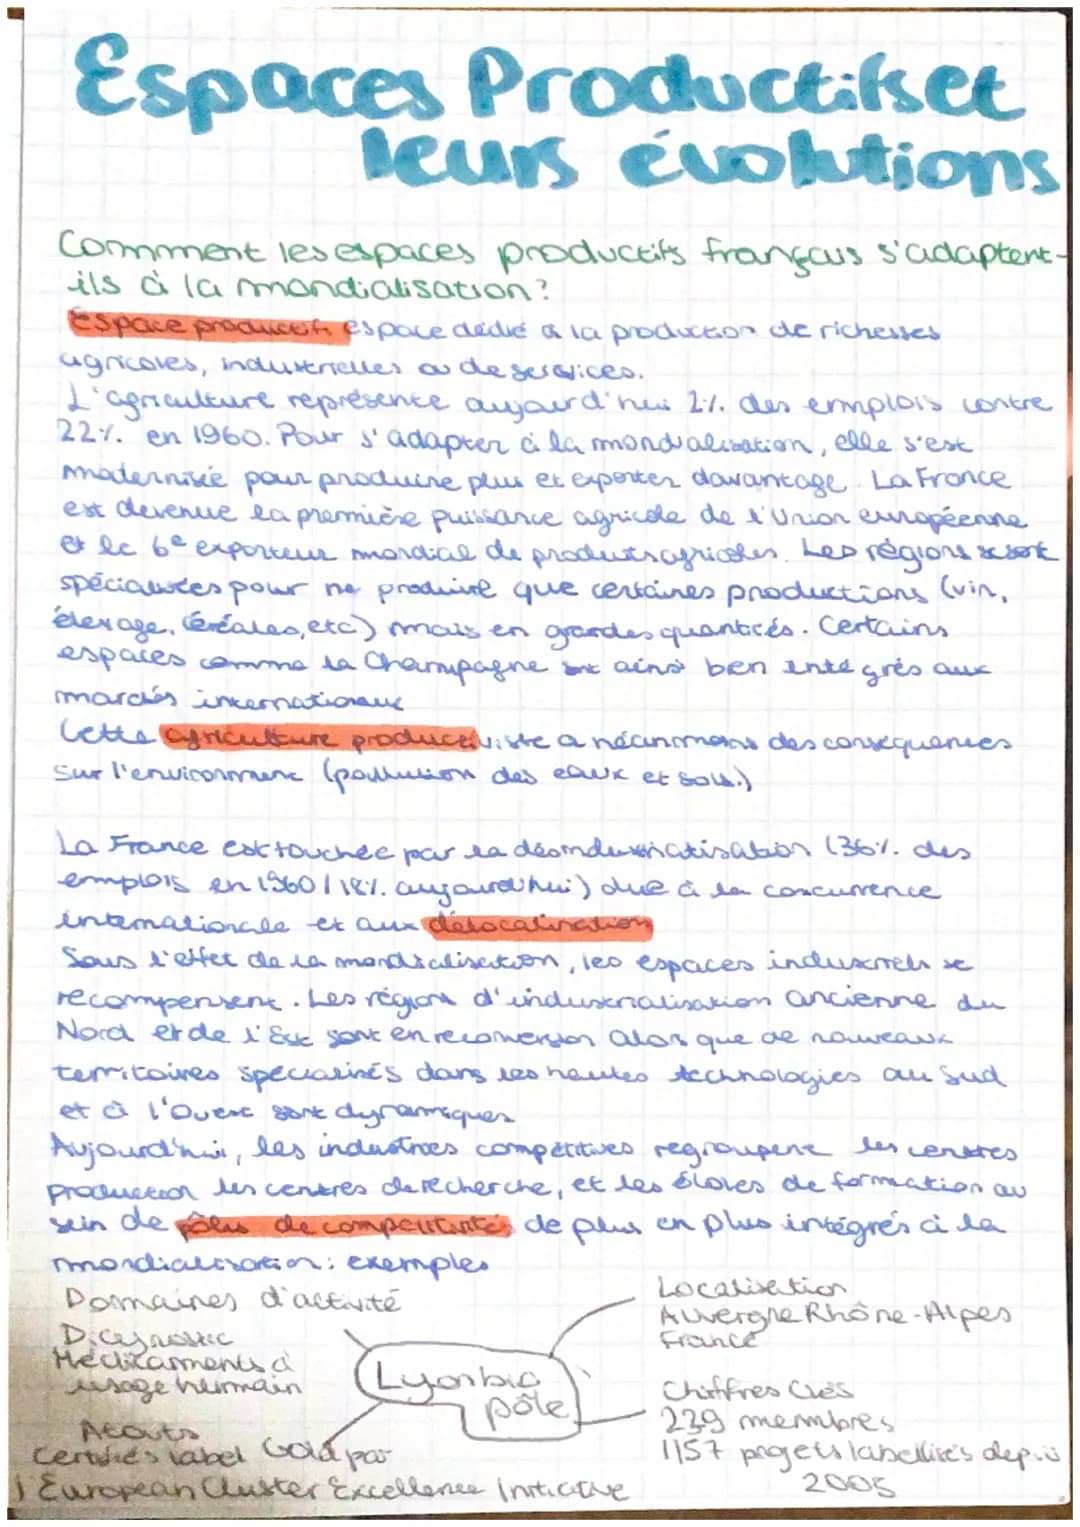 Espaces Productifs et
leurs évolutions
Comment les espaces productifs français s'adaptent-
ils à la mondialisation?
Espace productif, espace dédié à la production de richesses
agricoles, industrielles ou de services.
L'agriculture représente aujourd'hui 2% des emplois contre
22% en 1960. Pour s'adapter à la mondialisation, elle s'est
modernisée pour produire plus et exporter davantage. La France
est devenue la première puissance agricole de l'Union européenne
et le 6e exporteur mondial de produits agricoles. Les régions se sont
spécialisées pour ne produire que certaines productions (vin,
élevage, céréales, etc) mais en grandes quantités. Certains
espaces comme la Champagne sont ainsi bien intégrés aux
marchés internationaux
Cette agriculture productiviste a néanmoins des conséquences
sur l'environnement (pollution des eaux et sols.)
La France est touchée par la désindustrialisation (36% des
emplois en 1960 / 18% aujourd'hui) due à la concurrence
internationale et aux délocalisation
Sous l'effet de la mondialisation, les espaces industriels se
recompensent. Les régions d'industrialisation ancienne du
Nord et de l'Est sont en reconversion alors que de nouveaux
territoires spécialisés dans les hautes technologies au Sud
et à l'Ouest sont dynamiques
Aujourd'hui, les industries compétitives regroupent les centres
production les centres de recherche, et les de formation au
sein de pôles de compétitivité de plus en plus intégrés à la
mondialisation : exemples
Domaines d'activité
Diagnostic
Médicaments à
usage humain
Atouts
Certifiés label Gold par
l European Cluster Excellence Initiative
Lyonbio
pôle
Localisation
Auvergne Rhône-Alpes
France
Chiffres Clés
239 membres
1157 projets labellisés depuis
2005